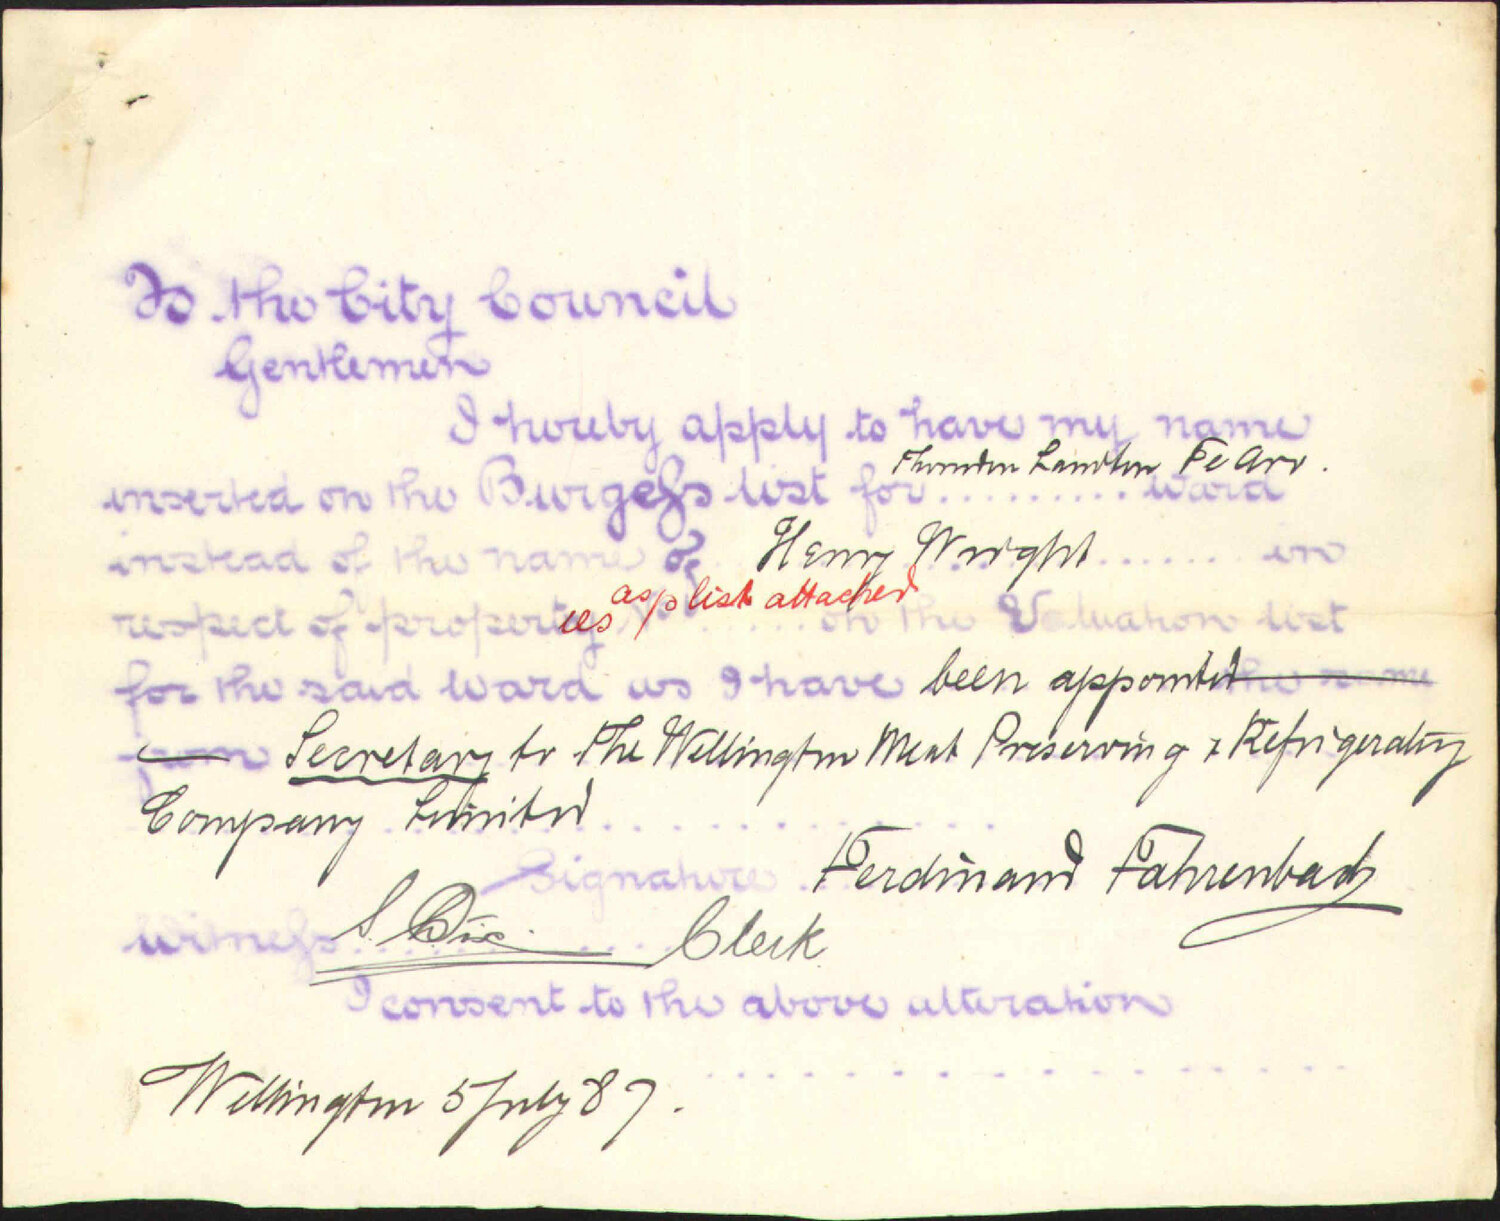 To the City Council
Gentlemen
I hereby apply to have my name
Thorndon Lambton Te Aro.
inserted on the Burgess list for .......... Ward
instead of the name of Henry Wright ...... in
as p list attached
respect of property ..... on the Valuation list
for the said Ward as I have been appointed the name
Secretary to The Wellington Meat Preserving & Refrigerating
Company Limited
Signature Ferdinand Fahrenbach
Witness S. Dix. Clerk
I consent to the above alteration
Wellington 5 July 87.